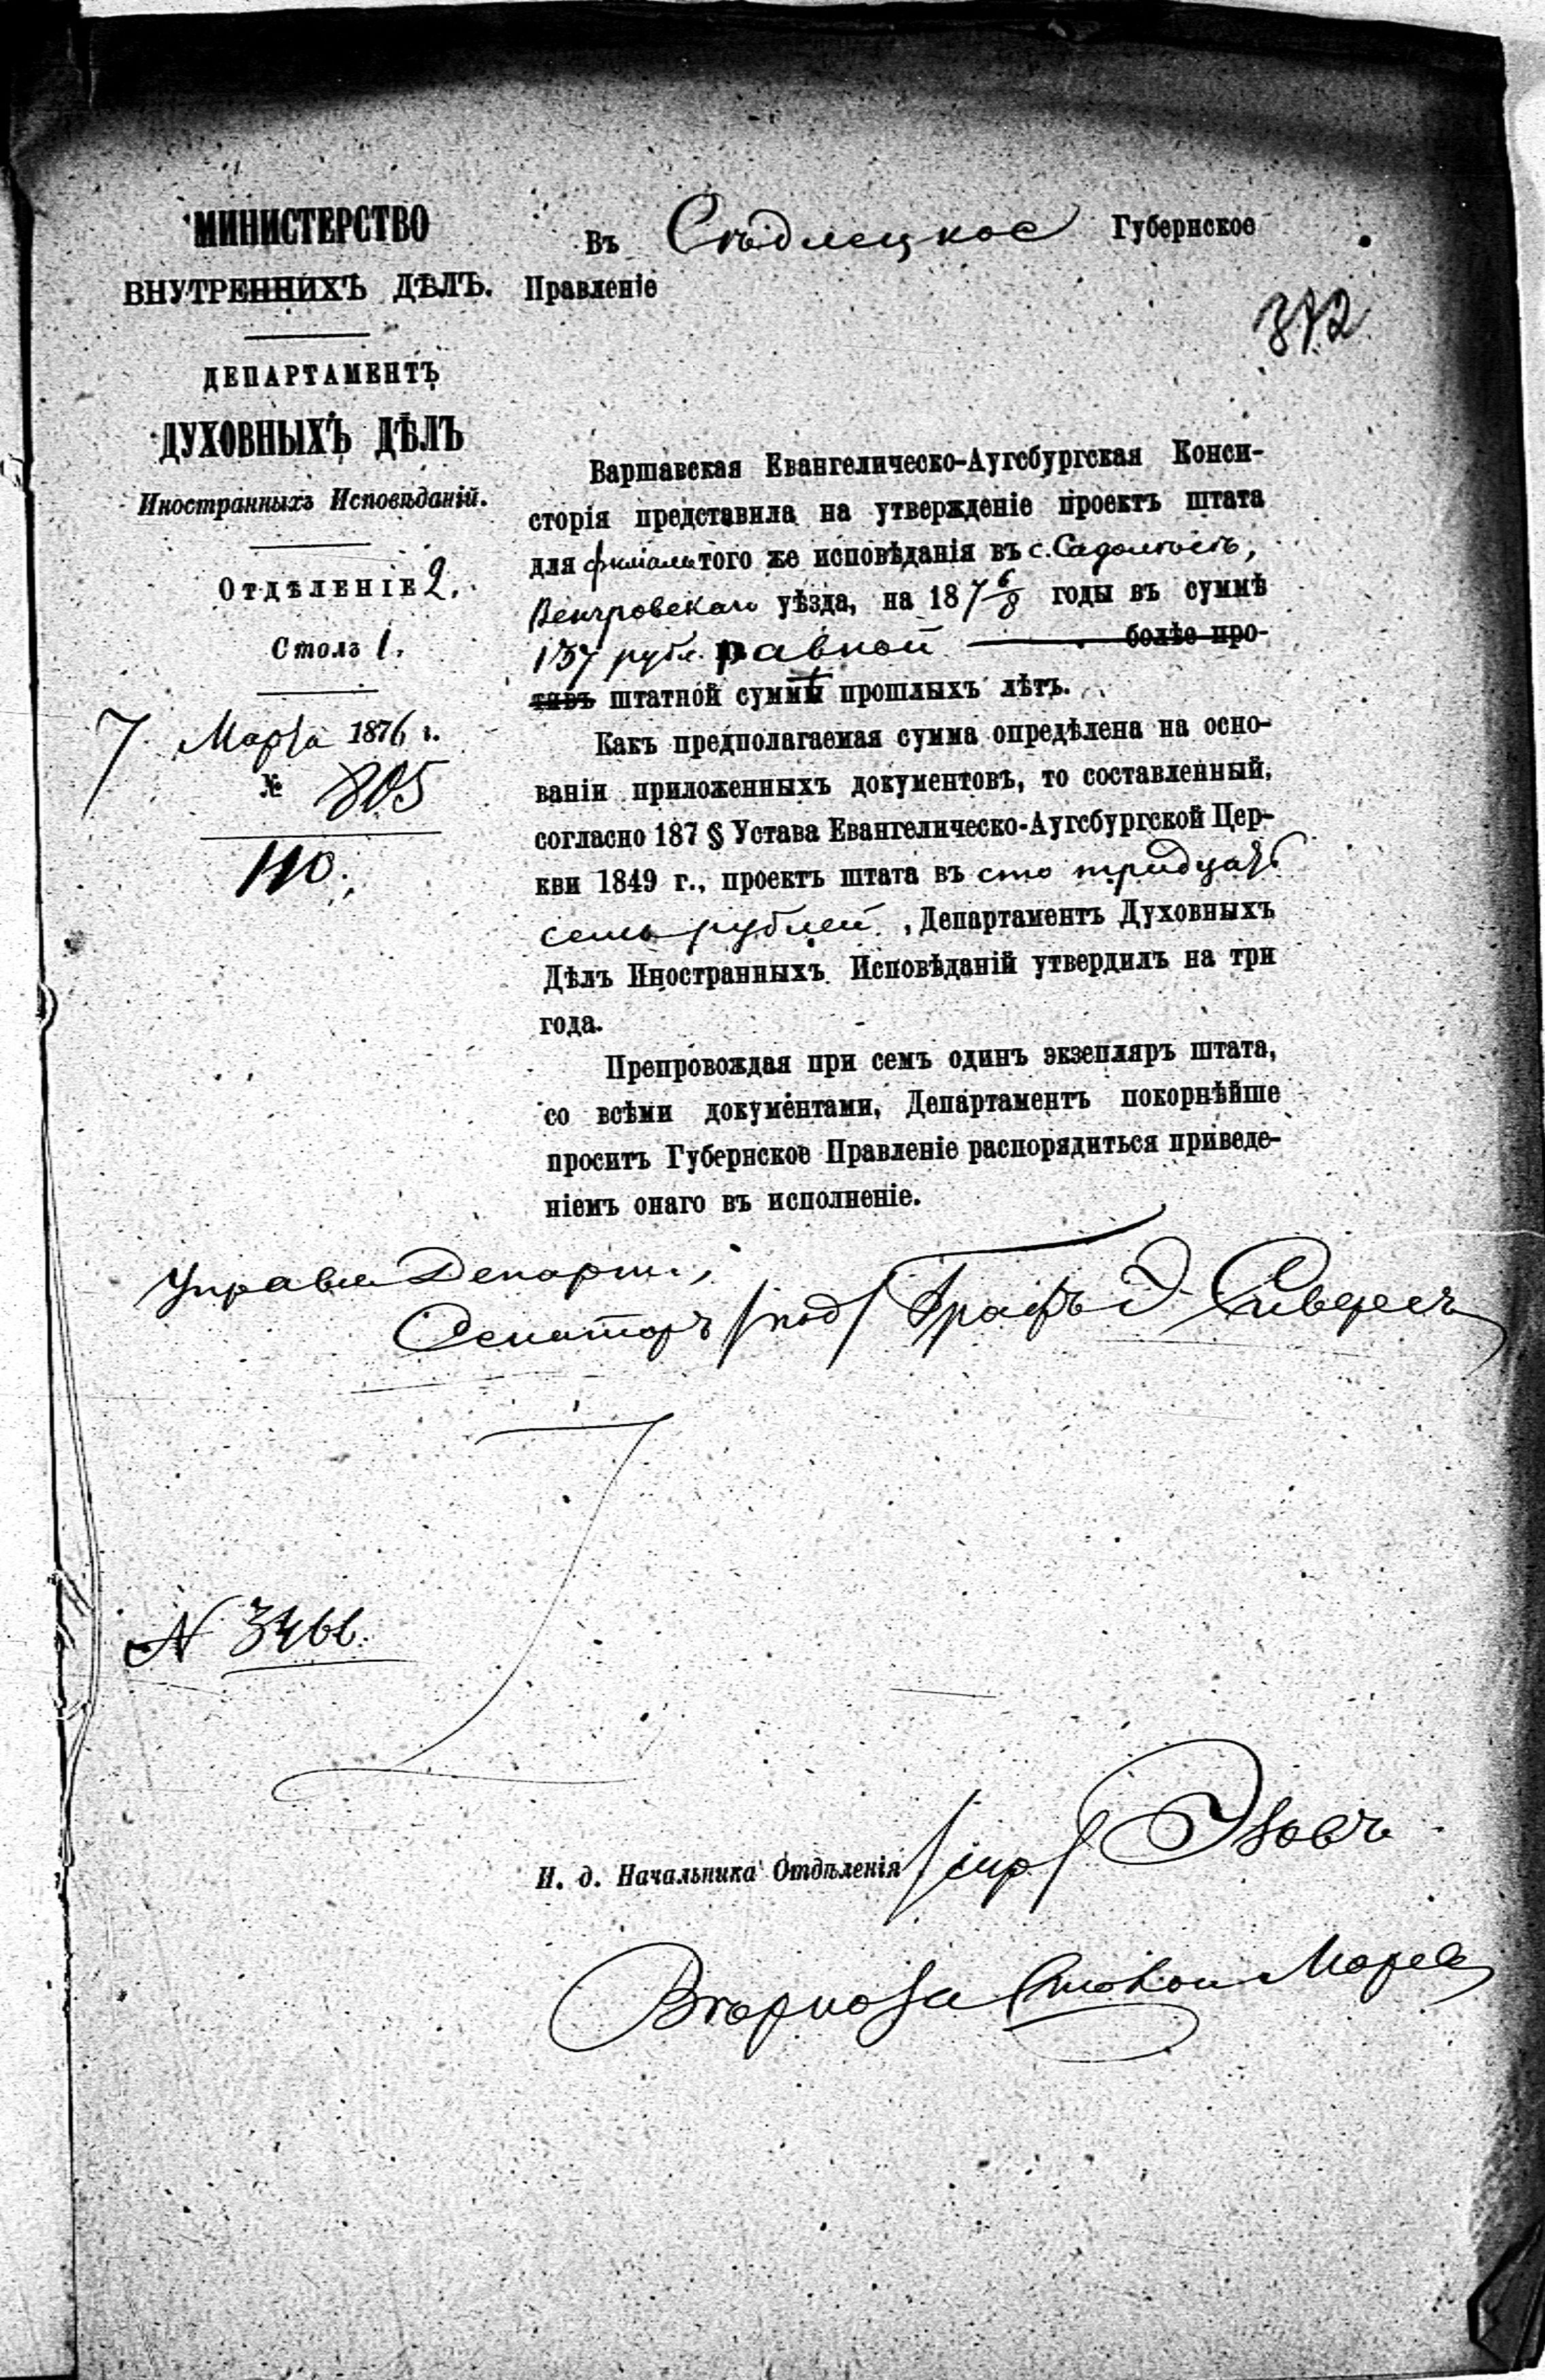 МИНИСТЕРСТВО
ВНУТРЕННИХЪ ДѢЛЪ.
ДЕПАРТАМЕНТЪ
ДУХОВНЫХЪ ДѢЛЪ
Иностранныхъ Исповѣданій.
ОТДѢЛЕНІЕ 2.
Столъ 1.
7 Марта 1876 г.
№ 805
110.
Въ Сѣдлецкое Губернское
Правленіе
372
Варшавская Евангелическо-Аугсбургская Конси-
сторія представила на утвержденіе проектъ штата
для филіала того же исповѣданія въ с. Садолесь,
Венгровскаго уѣзда, на 187 6/8 годы въ суммѣ
137 рубл. равной болѣе про-
тивъ штатной суммѣ прошлыхъ лѣтъ.
Какъ предполагаемая сумма опредѣлена на осно-
ваніи приложенныхъ документовъ, то составленный,
согласно 187 § Устава Евангелическо-Аугсбургской Цер-
кви 1849 г., проектъ штата въ сто тридцать
семь рублей, Департаментъ Духовныхъ
Дѣлъ Иностранныхъ Исповѣданій утвердилъ на три
года.
Препровождая при семъ одинъ экзепляръ штата,
со всѣми документами, Департаментъ покорнѣйше
проситъ Губернское Правленіе распорядиться приведе-
ніемъ онаго въ исполненіе.
Управл. Департ.,
Сенаторъ /под/ Графъ Э. Сиверсъ
N 3466.
И. д. Начальника Отдѣленія /скр/ Эзовъ